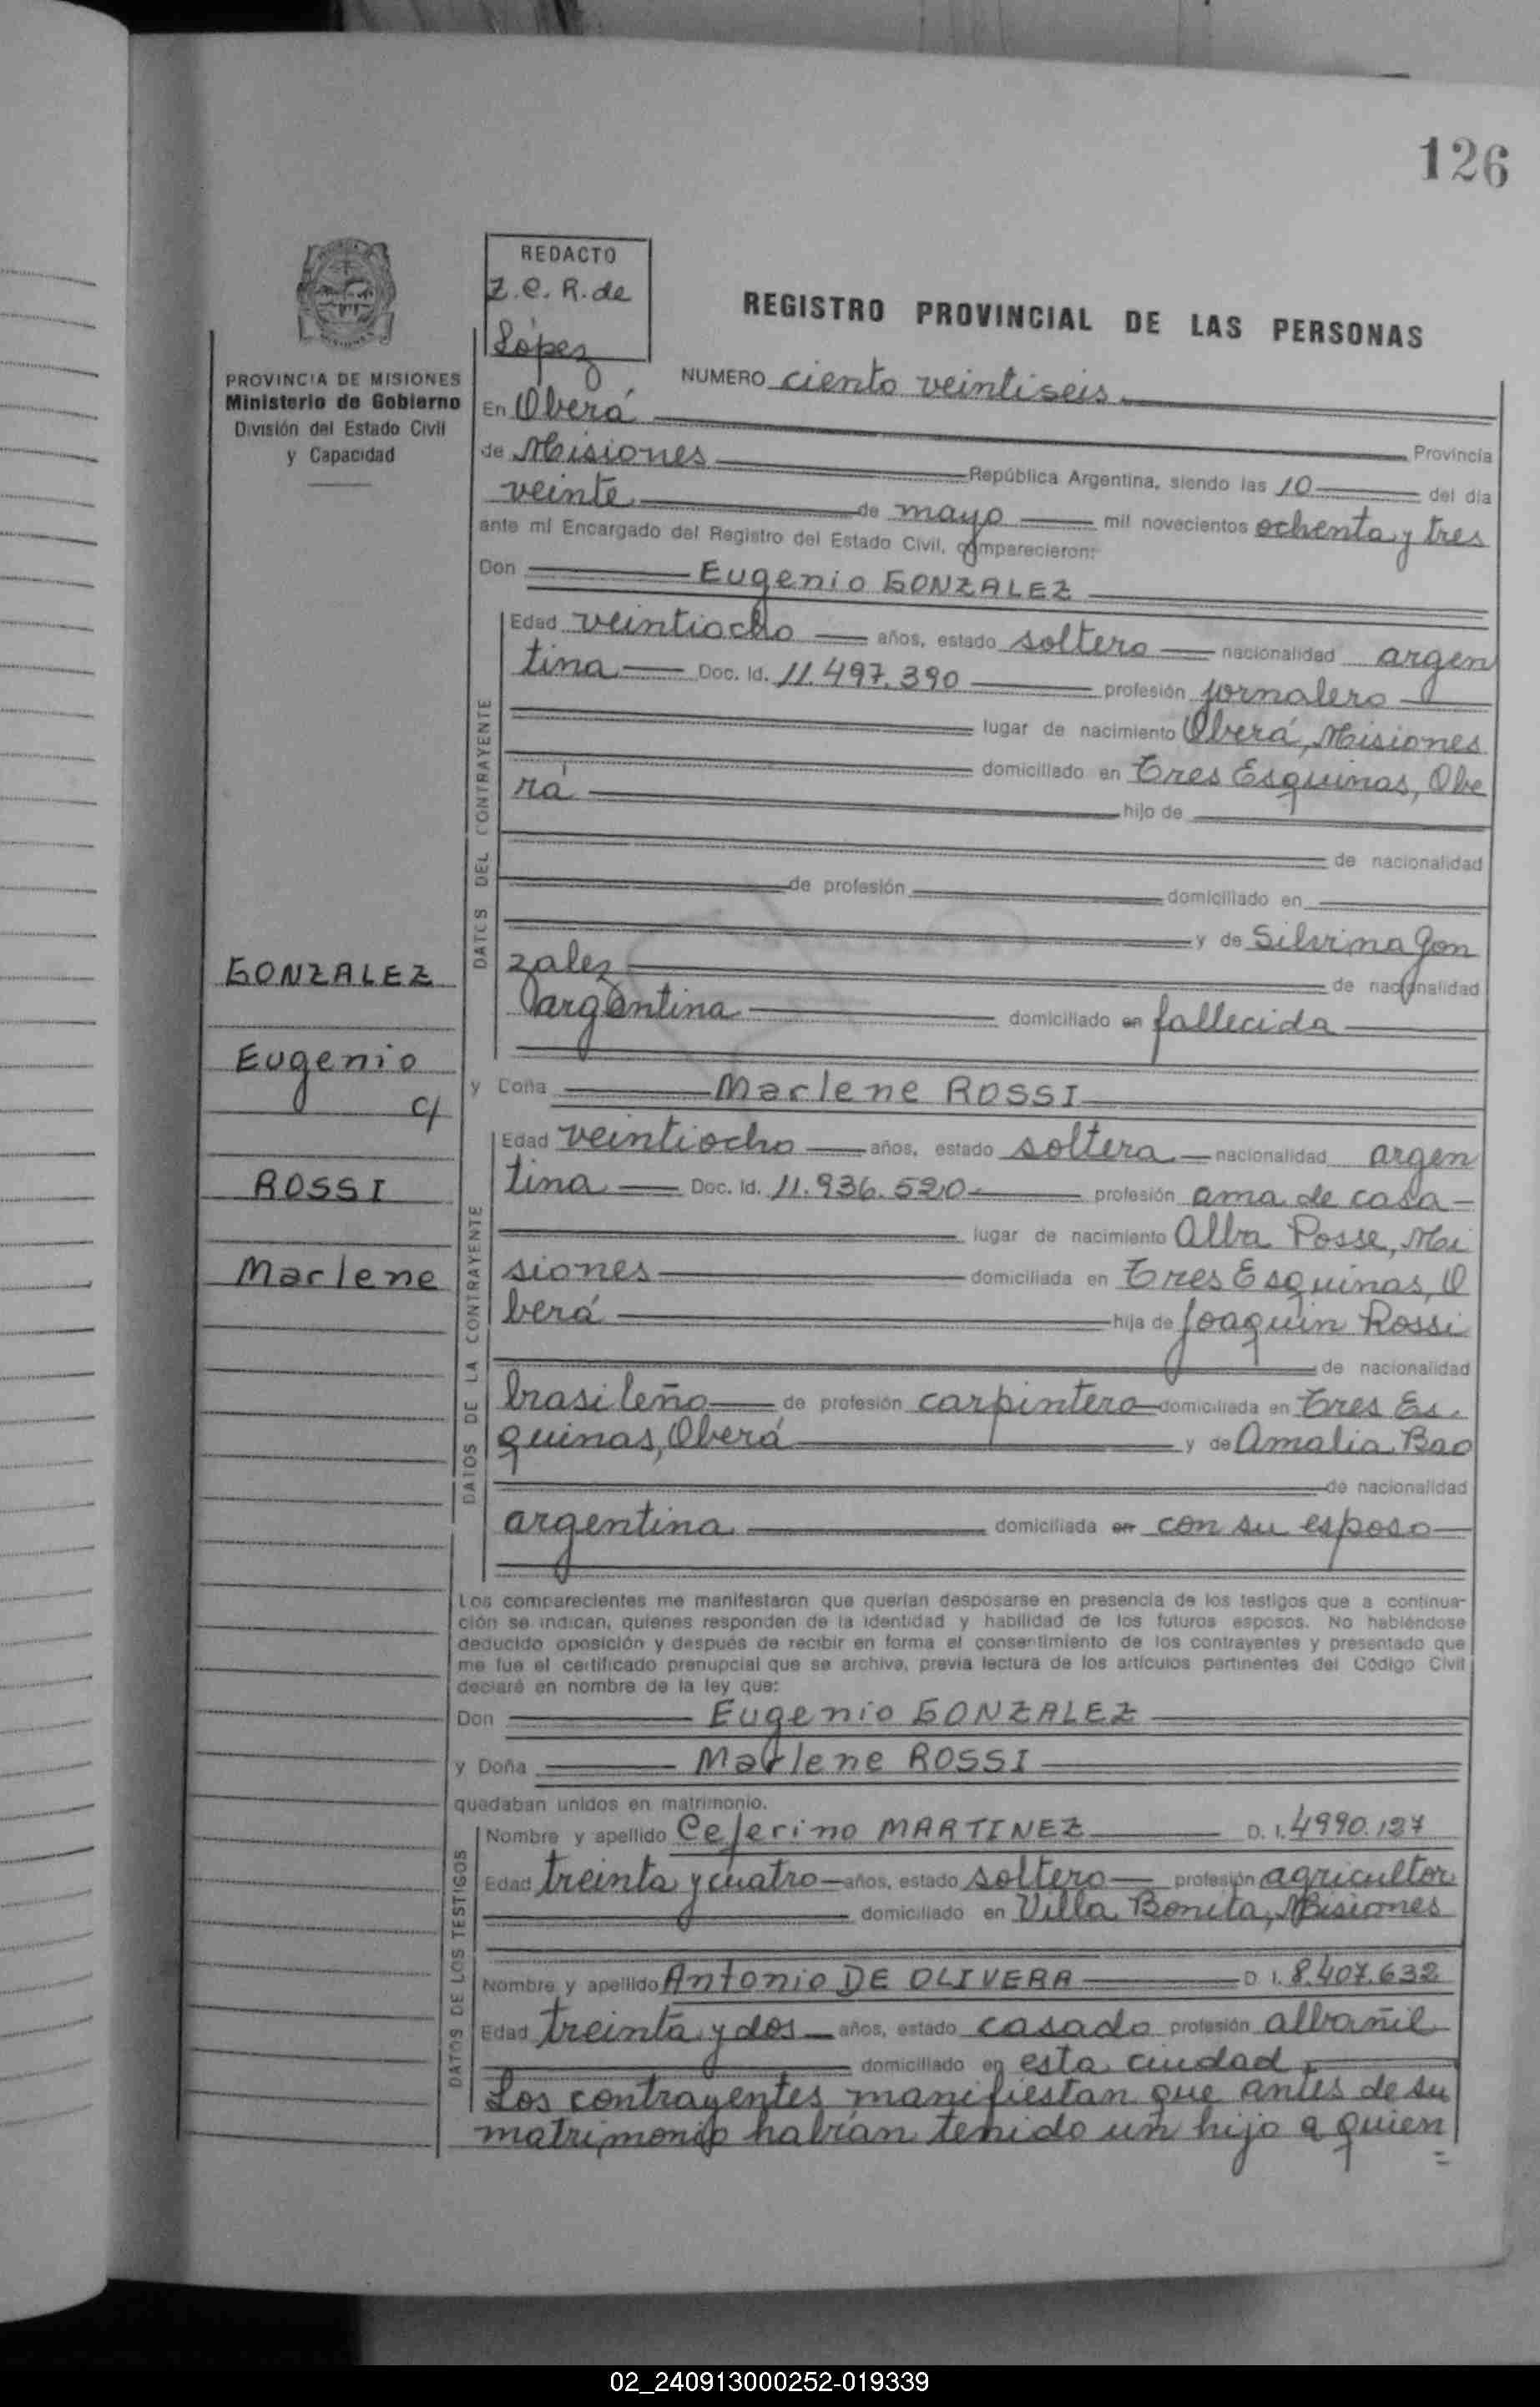 126
REDACTO
Z.C.R. de
López
REGISTRO PROVINCIAL DE LAS PERSONAS
PROVINCIA DE MISIONES
Ministerio de Gobierno
División del Estado Civil
y Capacidad
NUMERO ciento veintiseis
En Oberá Provincia
de Misiones República Argentina, siendo las 10 del día
veinte de mayo mil novecientos ochenta y tres
ante mí Encargado del Registro del Estado Civil, comparecieron:
Don Eugenio GONZALEZ
DATOS DEL CONTRAYENTE
Edad veintiocho años, estado soltero nacionalidad argen
tina Doc. Id. 11.497.390 profesión jornalero
lugar de nacimiento Oberá, Misiones
domiciliado en Tres Esquinas, Obe
rá hijo de
de nacionalidad
de profesión domiciliado en
y de Silvina Gon
zalez de nacionalidad
argentina domiciliado en fallecida
GONZALEZ
Eugenio
c/
ROSSI
Marlene
y Doña Marlene ROSSI
DATOS DE LA CONTRAYENTE
Edad veintiocho años, estado soltera nacionalidad argen
tina Doc. Id. 11.936.520 profesión ama de casa
lugar de nacimiento Alba Posse, Mi
siones domiciliada en Tres Esquinas, O
berá hija de Joaquin Rossi
de nacionalidad
brasileño de profesión carpintero domiciliada en Tres Es.
quinas, Oberá y de Amalia Bao
de nacionalidad
argentina domiciliada en con su esposo
Los comparecientes me manifestaron que querían desposarse en presencia de los testigos que a continua-
ción se indican, quienes responden de la identidad y habilidad de los futuros esposos. No habiéndose
deducido oposición y después de recibir en forma el consentimiento de los contrayentes y presentado que
me fue el certificado prenupcial que se archiva, previa lectura de los artículos pertinentes del Código Civil
declaré en nombre de la ley que:
Don Eugenio GONZALEZ
y Doña Marlene ROSSI
quedaban unidos en matrimonio.
DATOS DE LOS TESTIGOS
Nombre y apellido Ceferino MARTINEZ D. I. 4990.127
Edad treinta y cuatro años, estado soltero profesión agricultor
domiciliado en Villa Bonita, Misiones
Nombre y apellido Antonio DE OLIVERA D. I. 8.407.632
Edad treinta y dos años, estado casado profesión albañil
domiciliado en esta ciudad
Los contrayentes manifiestan que antes de su
matrimonio habían tenido un hijo a quien
=
02_240913000252-019339